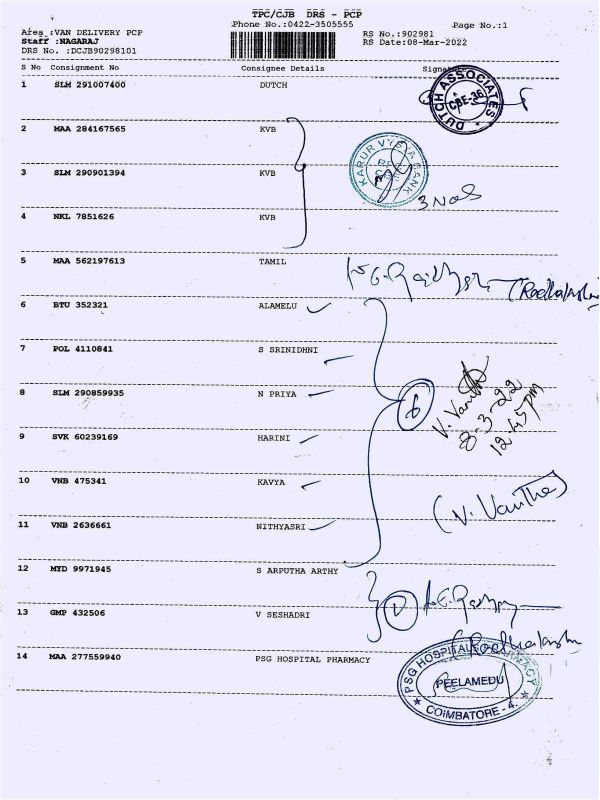 TPC/CJB DRS - PCP
Phone No.:0422-3505555
Page No.:1
Area :VAN DELIVERY PCP
RS No.:902981
Staff :NAGARAJ
RS Date:08-Mar-2022
DRS No. :DCJB90298101
S No Consignment No Consignee Details
1 SLM 291007400 DUTCH
DUTCH ASSOCIATES
CBE-36
2 MAA 284167565 KVB
KARUR VYSYA BANK
3 SLM 290901394 KVB
3 Nos
4 NKL 7851626 KVB
5 MAA 562197613 TAMIL
6 BTU 352321 ALAMELU
7 POL 4110841 S SRINIDHNI
8 SLM 290859935 N PRIYA
6
V. Vanitha
8-3-22
12.45 pm
9 SVK 60239169 HARINI
10 VNB 475341 KAVYA
(V. Vanitha)
11 VNB 2636661 NITHYASRI
12 MYD 9971945 S ARPUTHA ARTHY
13 GMP 432506 V SESHADRI
14 MAA 277559940 PSG HOSPITAL PHARMACY
PSG HOSPITALS PHARMACY
PEELAMEDU
COIMBATORE - 4.